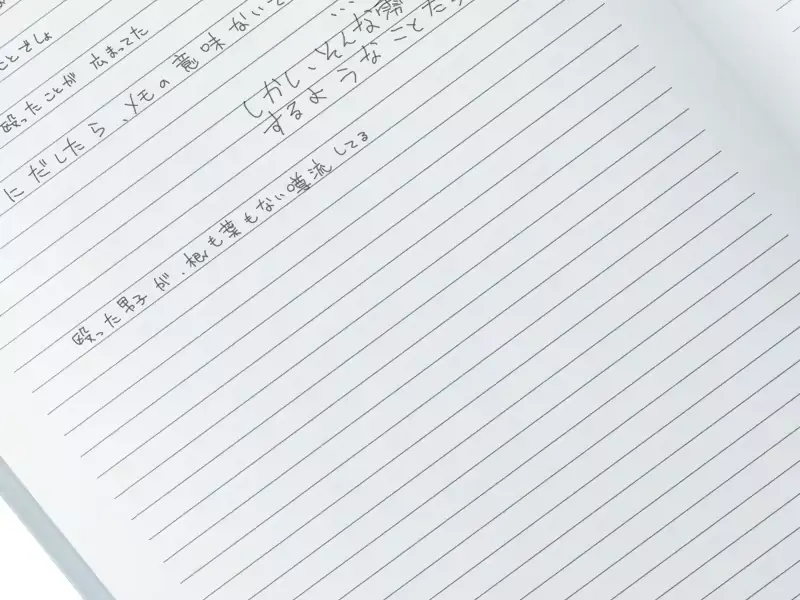 ことでしょ
殴ったことが 広まってた
にだしたら、メモの意味ないで
…
しかし、そんな
するようなことたら
殴った男子が、根も葉もない噂流してる